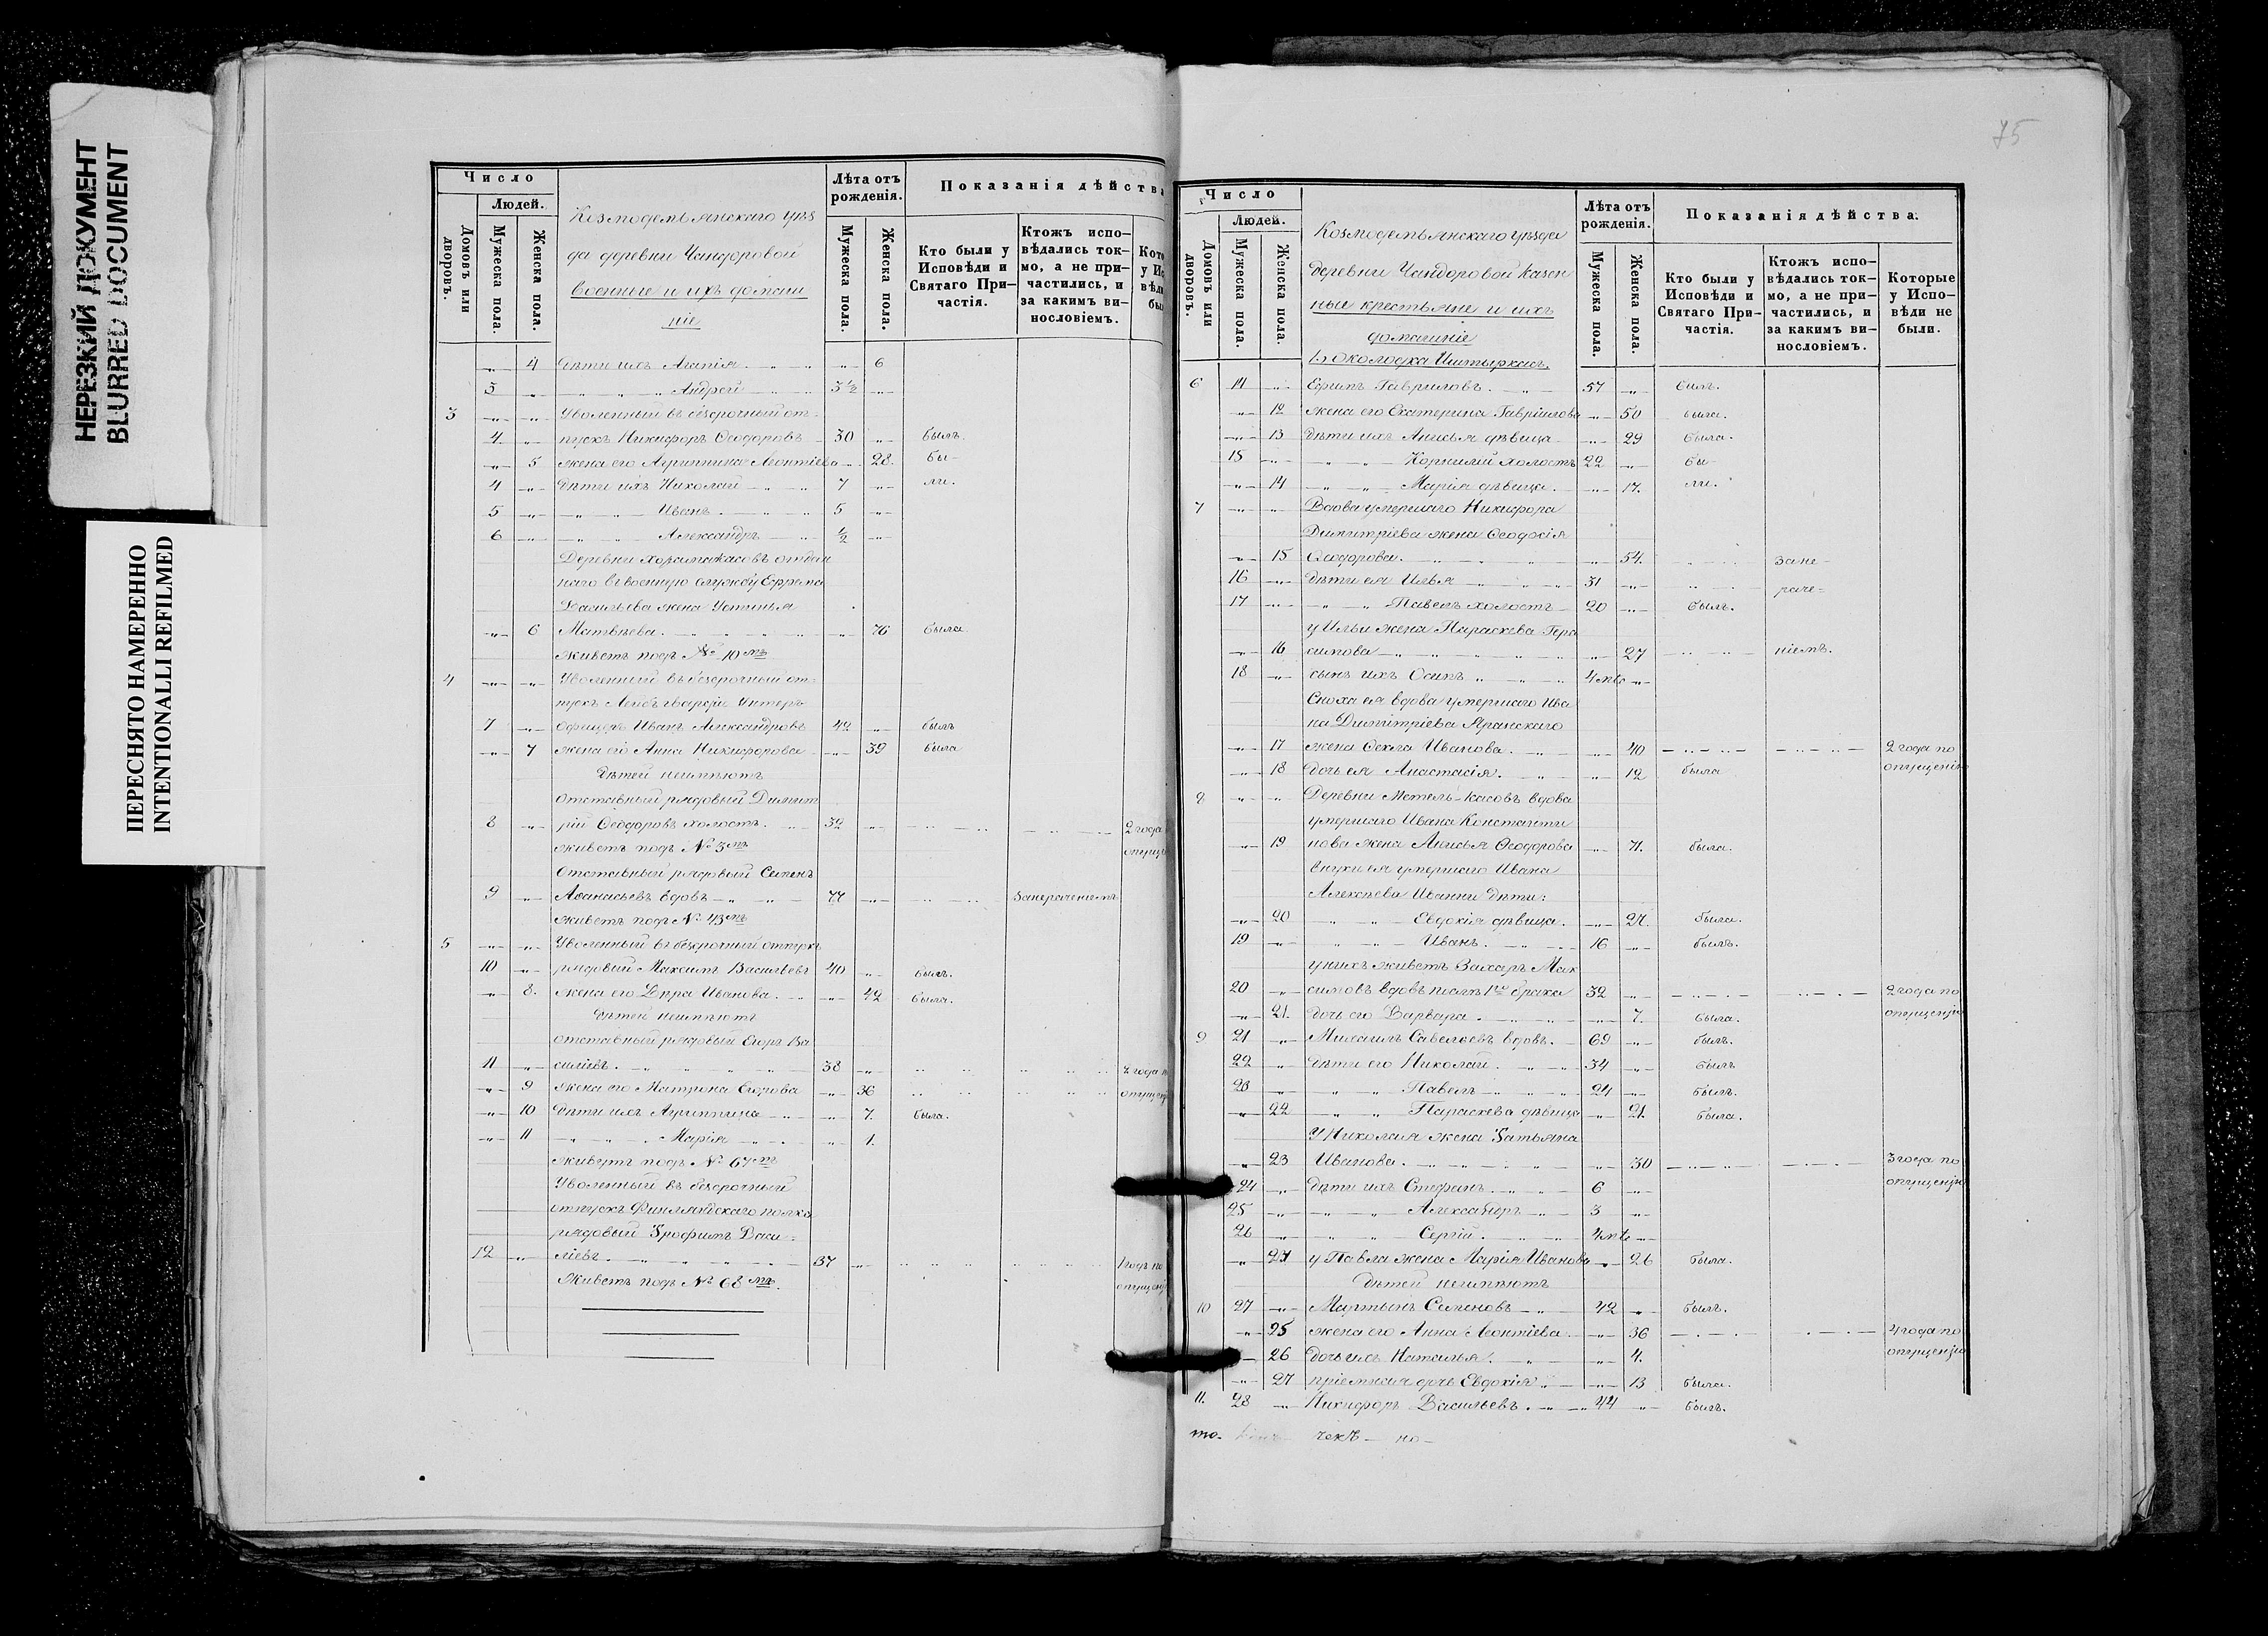 НЕРЕЗКИЙ ДОКУМЕНТ
BLURRED DOCUMENT
ПЕРЕСНЯТО НАМЕРЕННО
INTENTIONALLI REFILMED
Число
Людей.
Домовъ или дворовъ.
Мужеска пола.
Женска пола.
Козмодемьянскаго уѣз
да деревни Чандоровой
военные и ихъ домаш
ніе
Лѣта отъ рожденія.
Мужеска пола.
Женска пола.
Показанія дѣйства
Кто были у Исповѣди и Святаго При-частія.
Ктожъ испо-вѣдались ток-мо, а не при-частились, и за какимъ ви-нословіемъ.
„ 4 дѣти ихъ Агапія „ 6
3 „ Андрей 3½ „
3 „ „ Уволенный въ безсрочный от=
4 „ пускъ Никифоръ Ѳеодоровъ 30 „ былъ.
„ 5 жена его Агриппина Леонтіева „ 28. бы-
4 „ дѣти ихъ Николай 7 „ ли.
5 „ Иванъ. 5 „
6 „ Александръ ½ „
Деревни отдан
наго въ военную службу Ефрема
Васильева жена Устинья
„ 6 Матвѣева. „ 76 была.
живетъ подъ № 10мъ
4 „ „ Уволенный въ безсрочный от=
пускъ Лейбъ гвардіи Унтеръ
7 „ Офицеръ Иванъ Александровъ 42 „ былъ
„ 7 жена его Анна Никифорова „ 39 была
дѣтей неимѣютъ
Отставный рядовый Димит
8 „ рій Ѳеодоровъ холостъ. 32 „ 2 года
живетъ подъ № 3мъ
Отставный рядовый Семенъ
9 „ Аѳанасьевъ вдовъ 77 „ Занерачениемъ
живетъ подъ № 43мъ
5 „ „ Уволенный въ безсрочный отпускъ
10 „ рядовый Максимъ Васильевъ 40 „ былъ.
„ 8. жена его Вѣра Иванова. „ 42 была.
дѣтей неимѣютъ
отставный рядовый Егоръ Ва
11 „ силіевъ. 38 „ 2 года
„ 9 жена его Матрона Егорова „ 36
„ 10 дѣти ихъ Агриппина „ 7. была.
„ 11 Марія „ 1.
живутъ подъ № 67мъ
Уволенный въ безсрочный
отпускъ Финляндскаго полка
рядовый Трофимъ Васи=
12 „ ліевъ. 37 „ 1 годъ по
Живетъ подъ № 68мъ.
75
Число
Людей.
Домовъ или дворовъ.
Мужеска пола.
Женска пола.
Козмодемьянскаго уѣзда
деревни Чандоровой казен
ные крестьяне и ихъ
домашніе
Лѣта отъ рожденія.
Мужеска пола.
Женска пола.
Показанія дѣйства.
Кто были у Исповѣди и Святаго При-частія.
Ктожъ испо-вѣдались ток-мо, а не при-частились, и за какимъ ви-нословіемъ.
Которые у Испо-вѣди не были.
6 14 „ Ефимъ Гавриловъ. 57 „ былъ.
„ 12 жена его Екатерина Гавріилова „ 50 была.
„ 13 дѣти ихъ Анисья дѣвица „ 29 была.
15 „ Корнилій холостъ 22 „ бы
„ 14 Марія дѣвица. „ 17. ли.
7 „ „ Вдова умершаго Никифора
Димитріева жена Ѳеодосія
„ 15 Ѳеодорова. „ 54. зане-
16 „ дѣти ея Илья 31 „ раче-
17 „ Павелъ холостъ 20 „ былъ.
у Ильи жена Параскева Гера
„ 16 симова „ 27 ніемъ.
18 „ сынъ ихъ Осипъ 4 мѣс „
Сноха ея вдова умершаго Ива
на Димитріева Яранскаго
„ 17 жена Ѳекла Иванова. „ 40 2 года по
„ 18 дочь ея Анастасія. „ 12 была опущенію
8 „ „ Деревни вдова
умершаго Ивана Константи
„ 19 нова жена Анисья Ѳеодорова „ 71. была.
внуки ея умершаго Ивана
Алексѣева дѣти:
„ 20 Евдокія дѣвица. „ 27. была.
19 „ Иванъ. 16 „ былъ.
у нихъ живетъ Захаръ Мак
20 „ симовъ вдовъ послѣ 1го брака 32 „ 2 года по
„ 21. дочь его Варвара. „ 7. была. опущенію
9 21 „ Михаилъ Савельевъ вдовъ. 69 „ былъ.
22 „ дѣти его Николай. 34 „ былъ
23 „ Павелъ 24 „ былъ.
„ 22 Параскева дѣвица „ 21. была.
У Николая жена Татьяна
„ 23 Иванова. „ 30 3 года по
24 „ дѣти ихъ Стефанъ. 6 „ опущенію
25 „ Александръ 3 „
26 „ Сергій. 4 мѣс „
„ 24 у Павла жена Марія Иванова „ 26 была.
дѣтей неимѣютъ
10 27 „ Мартынъ Семеновъ 42 „ былъ.
„ 25 жена его Анна Леонтіева „ 36 4 года по
„ 26 дочь ихъ Наталья. „ 4. опущенію
„ 27 пріемная дочь Евдокія „ 13 была.
11. 28 „ Никифоръ Васильевъ. 44 „ былъ.